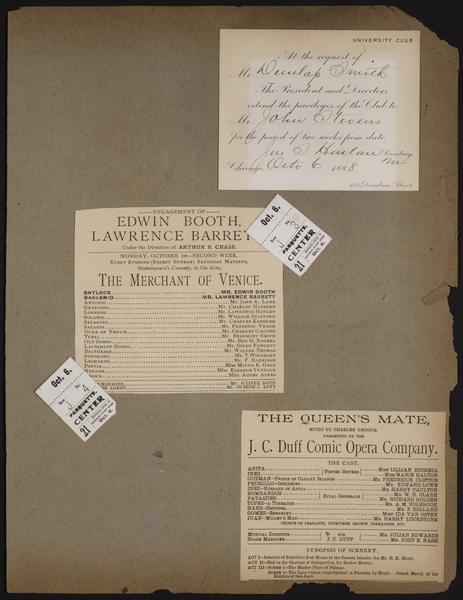 UNIVERSITY CLUB
At the request of
Mr. Dunlap Smith
The President and Directors
extend the privileges of the Club to
Mr. John Stevens
for the period of two weeks from date.
Jas. S. Harlan Secretary
Chicago, Oct 6 1888
Dearborn Street
ENGAGEMENT OF
EDWIN BOOTH,
LAWRENCE BARRET
Under the Direction of ARTHUR B. CHASE.
MONDAY, OCTOBER 1st—SECOND WEEK.
EVERY EVENING (EXCEPT SUNDAY) SATURDAY MATINEE,
Shakespeare's Comedy, in Six Acts,
THE MERCHANT OF VENICE.
SHYLOCK MR. EDWIN BOOTH
BASSANIO MR. LAWRENCE BARRETT
ANTONIO MR. JOHN A. LANE
GRATIANO MR. CHARLES HANFORD
LORENZO MR. LAWRENCE HANLEY
SOLANIO MR. WILLIAM STAFFORD
SALARINO MR. CHARLES KOEHLER
SALARIO MR. FREDERIC VROOM
DUKE OF VENICE MR. CHARLES COLLINS
TUBAL MR. BEAUMONT SMITH
OLD GOBBO MR. BEN G. ROGERS
LAUNCELOT GOBBO MR. OWEN FAWCETT
BALTHAZAR MR. WALTER THOMAS
STEPHANO MR. T.
LEONARDO MR. F. HARRISON
PORTIA MISS MINNA K. GALE
NERISSA MISS ELEANOR TYNDALE
MISS AGNES ACRES
MANAGER MR. OLIVER DOUD
AGENT MR. JOSEPH J. LEVY
Oct. 6.
Row J 3
PARQUETTE.
CENTER
21
Oct. 6.
Oct. 6.
Row J 4
PARQUETTE.
CENTER
21
Oct. 6.
THE QUEEN'S MATE,
MUSIC BY CHARLES LECOCQ,
PRESENTED BY THE
J. C. DUFF COMIC OPERA COMPANY.
THE CAST.
ANITA MISS LILLIAN RUSSELL
INEZ MISS MARIE HALTON
FOSTER SISTERS
GUZMAN—PRINCE OF CANARY ISLANDS MR. FREDERICK CLIFTON
PEDRILLO—INNKEEPER MR. EDWARD LOWE
INEZ—HUSBAND OF ANITA MR. HARRY PAULTON
BOMBARDOS MR. W. H. CLARK
PATAQUES MR. RICHARD GOLDEN
RIVAL GENERALS
TOPEZ—A TOREADOR MR. A. M. HOLBROOK
HANZ—SENTINEL MR. F. HOLLAND
GOMES—SERGEANT MISS IDA VAN OSTEN
JUAN—MILLER'S MAN MR. HARRY LUCKSTONE
CHORUS OF PEASANTS, COURTIERS, CADETS, TOREADORS, ETC.
MUSICAL DIRECTOR FOR MR. JULIAN EDWARDS
STAGE MANAGER J. C. DUFF MR. JOHN E. NASH
SYNOPSIS OF SCENERY.
ACT I—Interior of Pedrillo's Post House in the Canary Islands, (by Mr. H. E. Hoyt).
ACT II—Hall in the Castenet of Guingardos, (by Harley Merry).
ACT III—SCENE 1—The Market Place of Palmas.